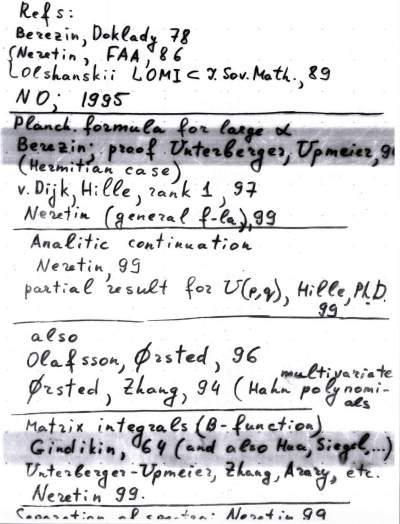 Refs:
Berezin, Doklady 78
{Neretin, FAA, 86
Olshanskii LOMI ⊂ J. Sov. Math., 89
NO; 1995
Planch. formula for large α
Berezin; proof Unterberger, Upmeier, 9
(Hermitian case)
v. Dijk, Hille, rank 1, 97
Neretin (general f-la), 99
Analitic continuation
Neretin, 99
partial result for U(p,q), Hille, Ph.D.
99
also
Olafsson, Ørsted, 96
Ørsted, Zhang, 94 (Hahn multivariate polynomi-
als
Matrix integrals (B-function)
Gindikin, 64 (and also Hua, Siegel,...)
Unterberger-Upmeier, Zhang, Arazy, etc.
Neretin 99.
Neretin 99